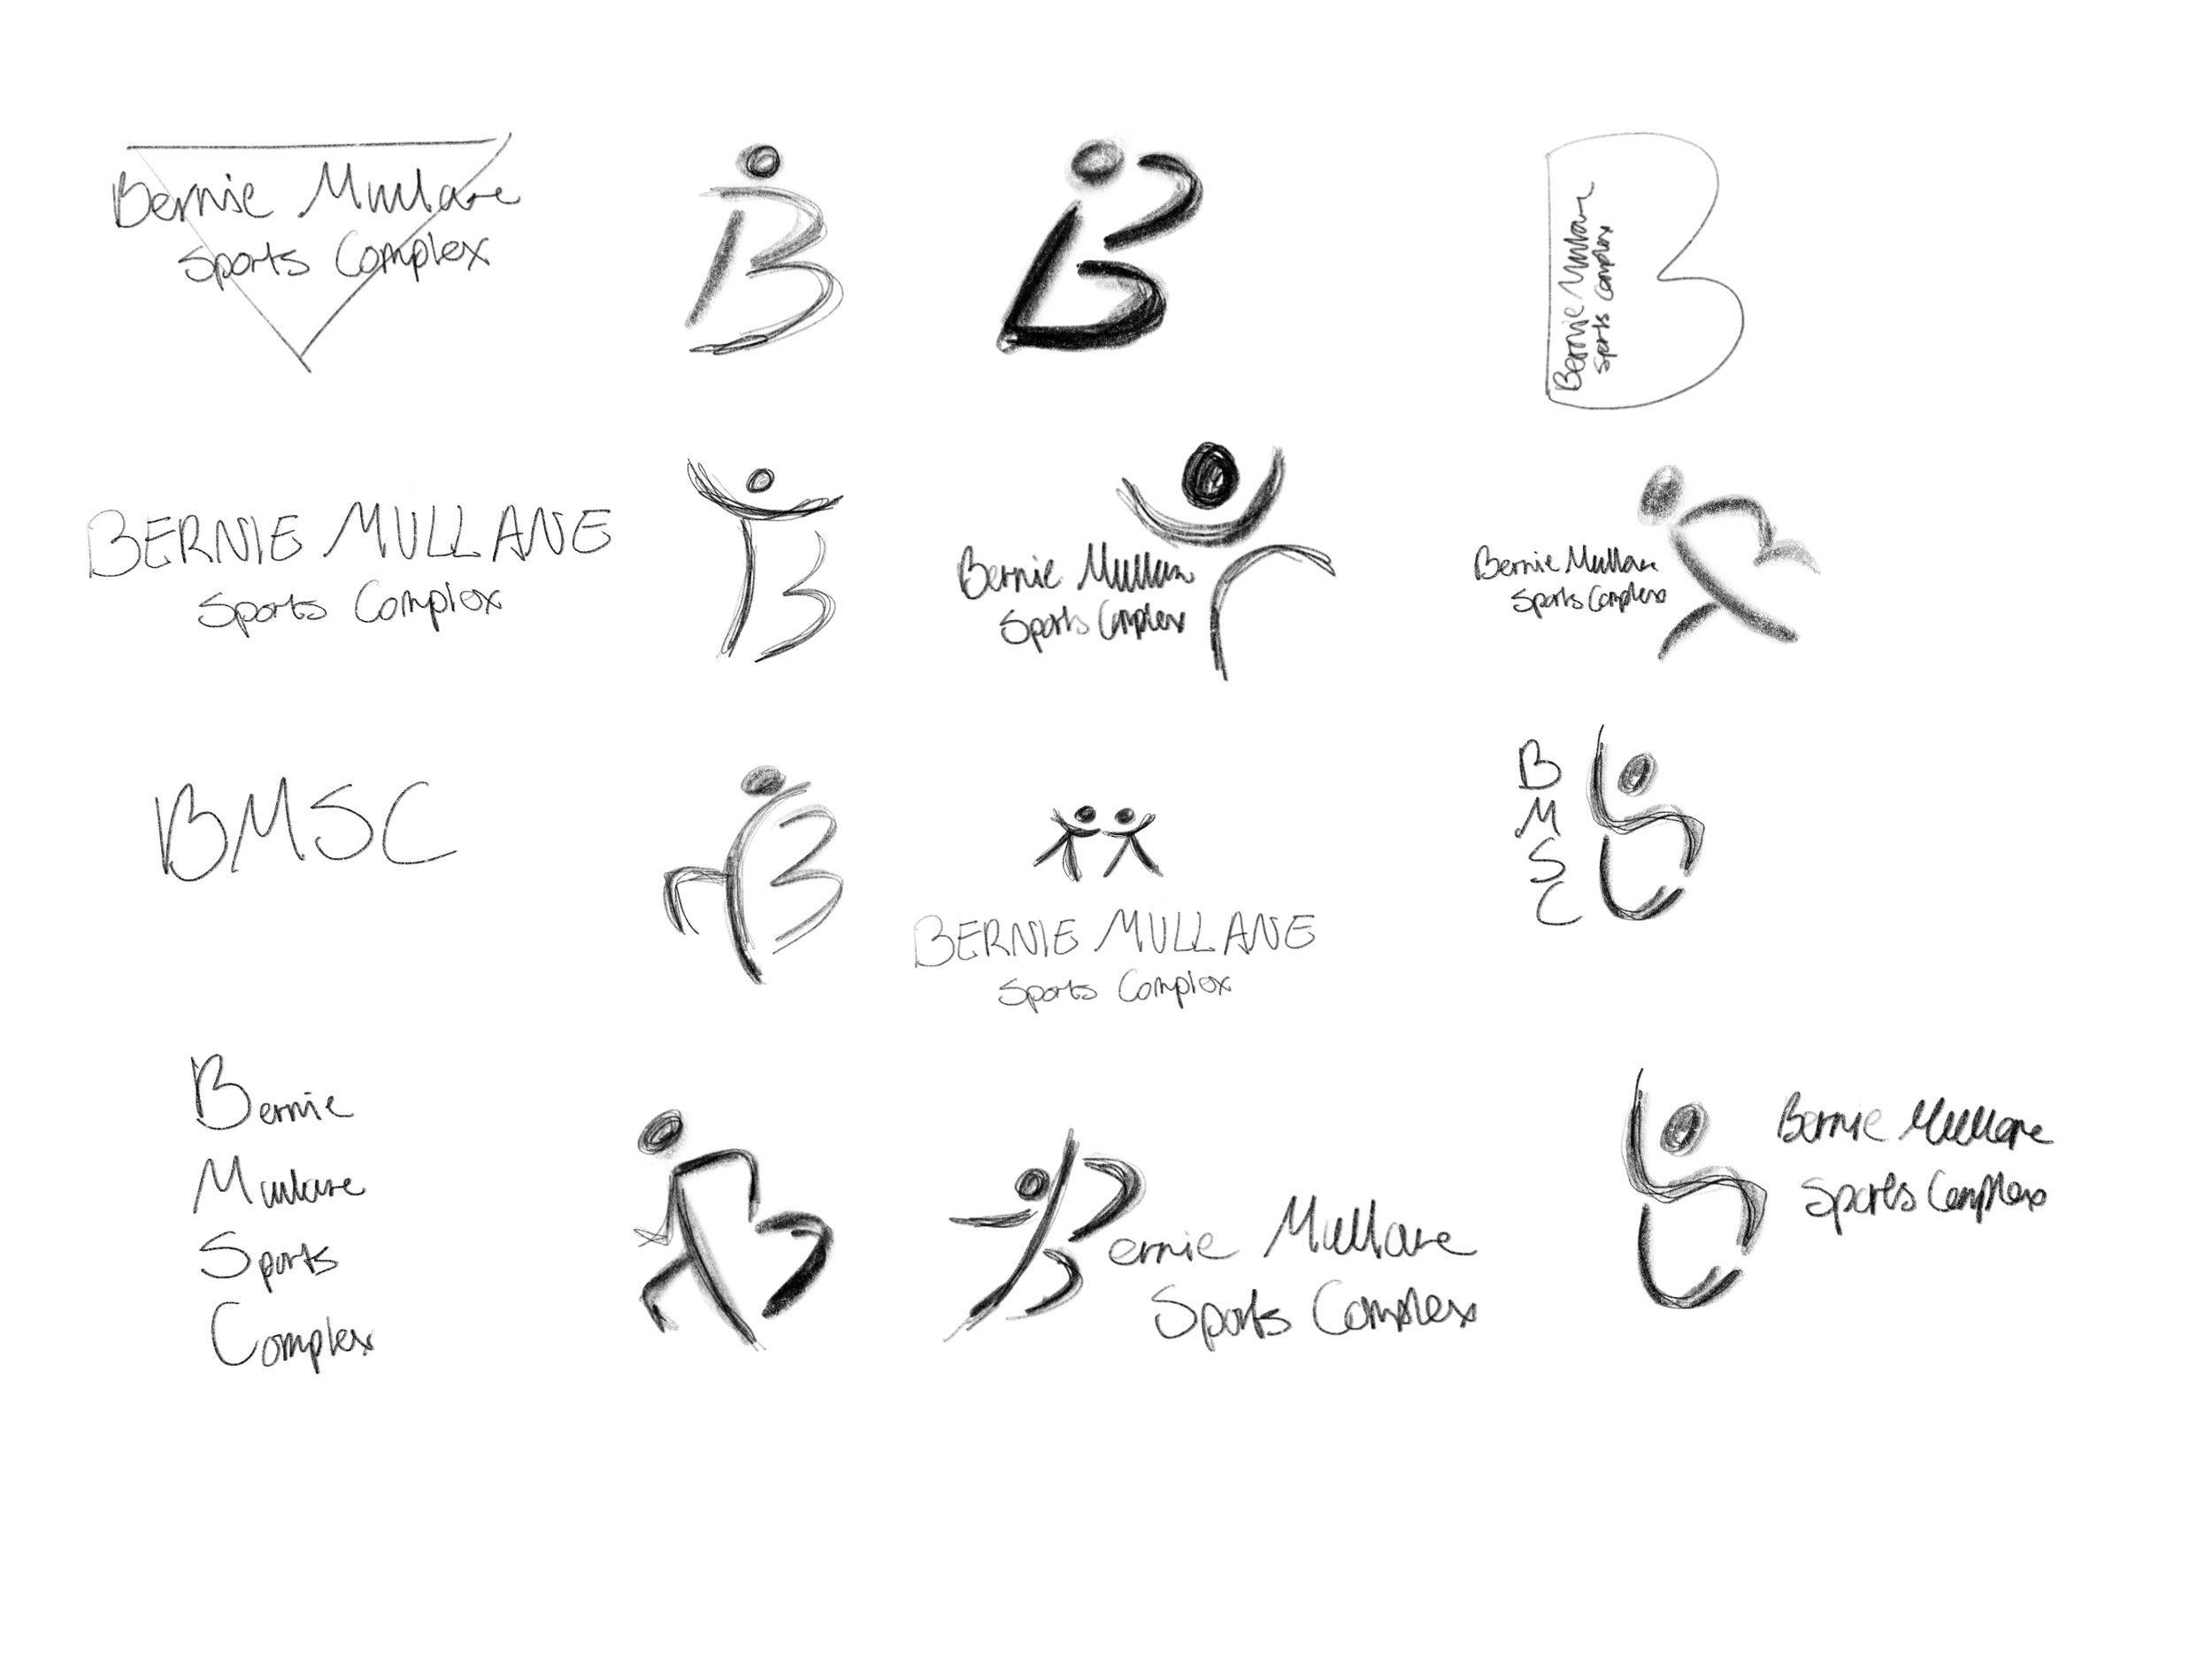 Bernie Mullane
Sports Complex
Bernie Mullane
Sports Complex
BERNIE MULLANE
Sports Complex
B
Bernie Mullane
Sports Complex
Bernie Mullane
Sports Complex
BMSC
B
BERNIE MULLANE
Sports Complex
B
M
S
C
Bernie
Mullane
Sports
Complex
Bernie Mullane
Sports Complex
Bernie Mullane
Sports Complex